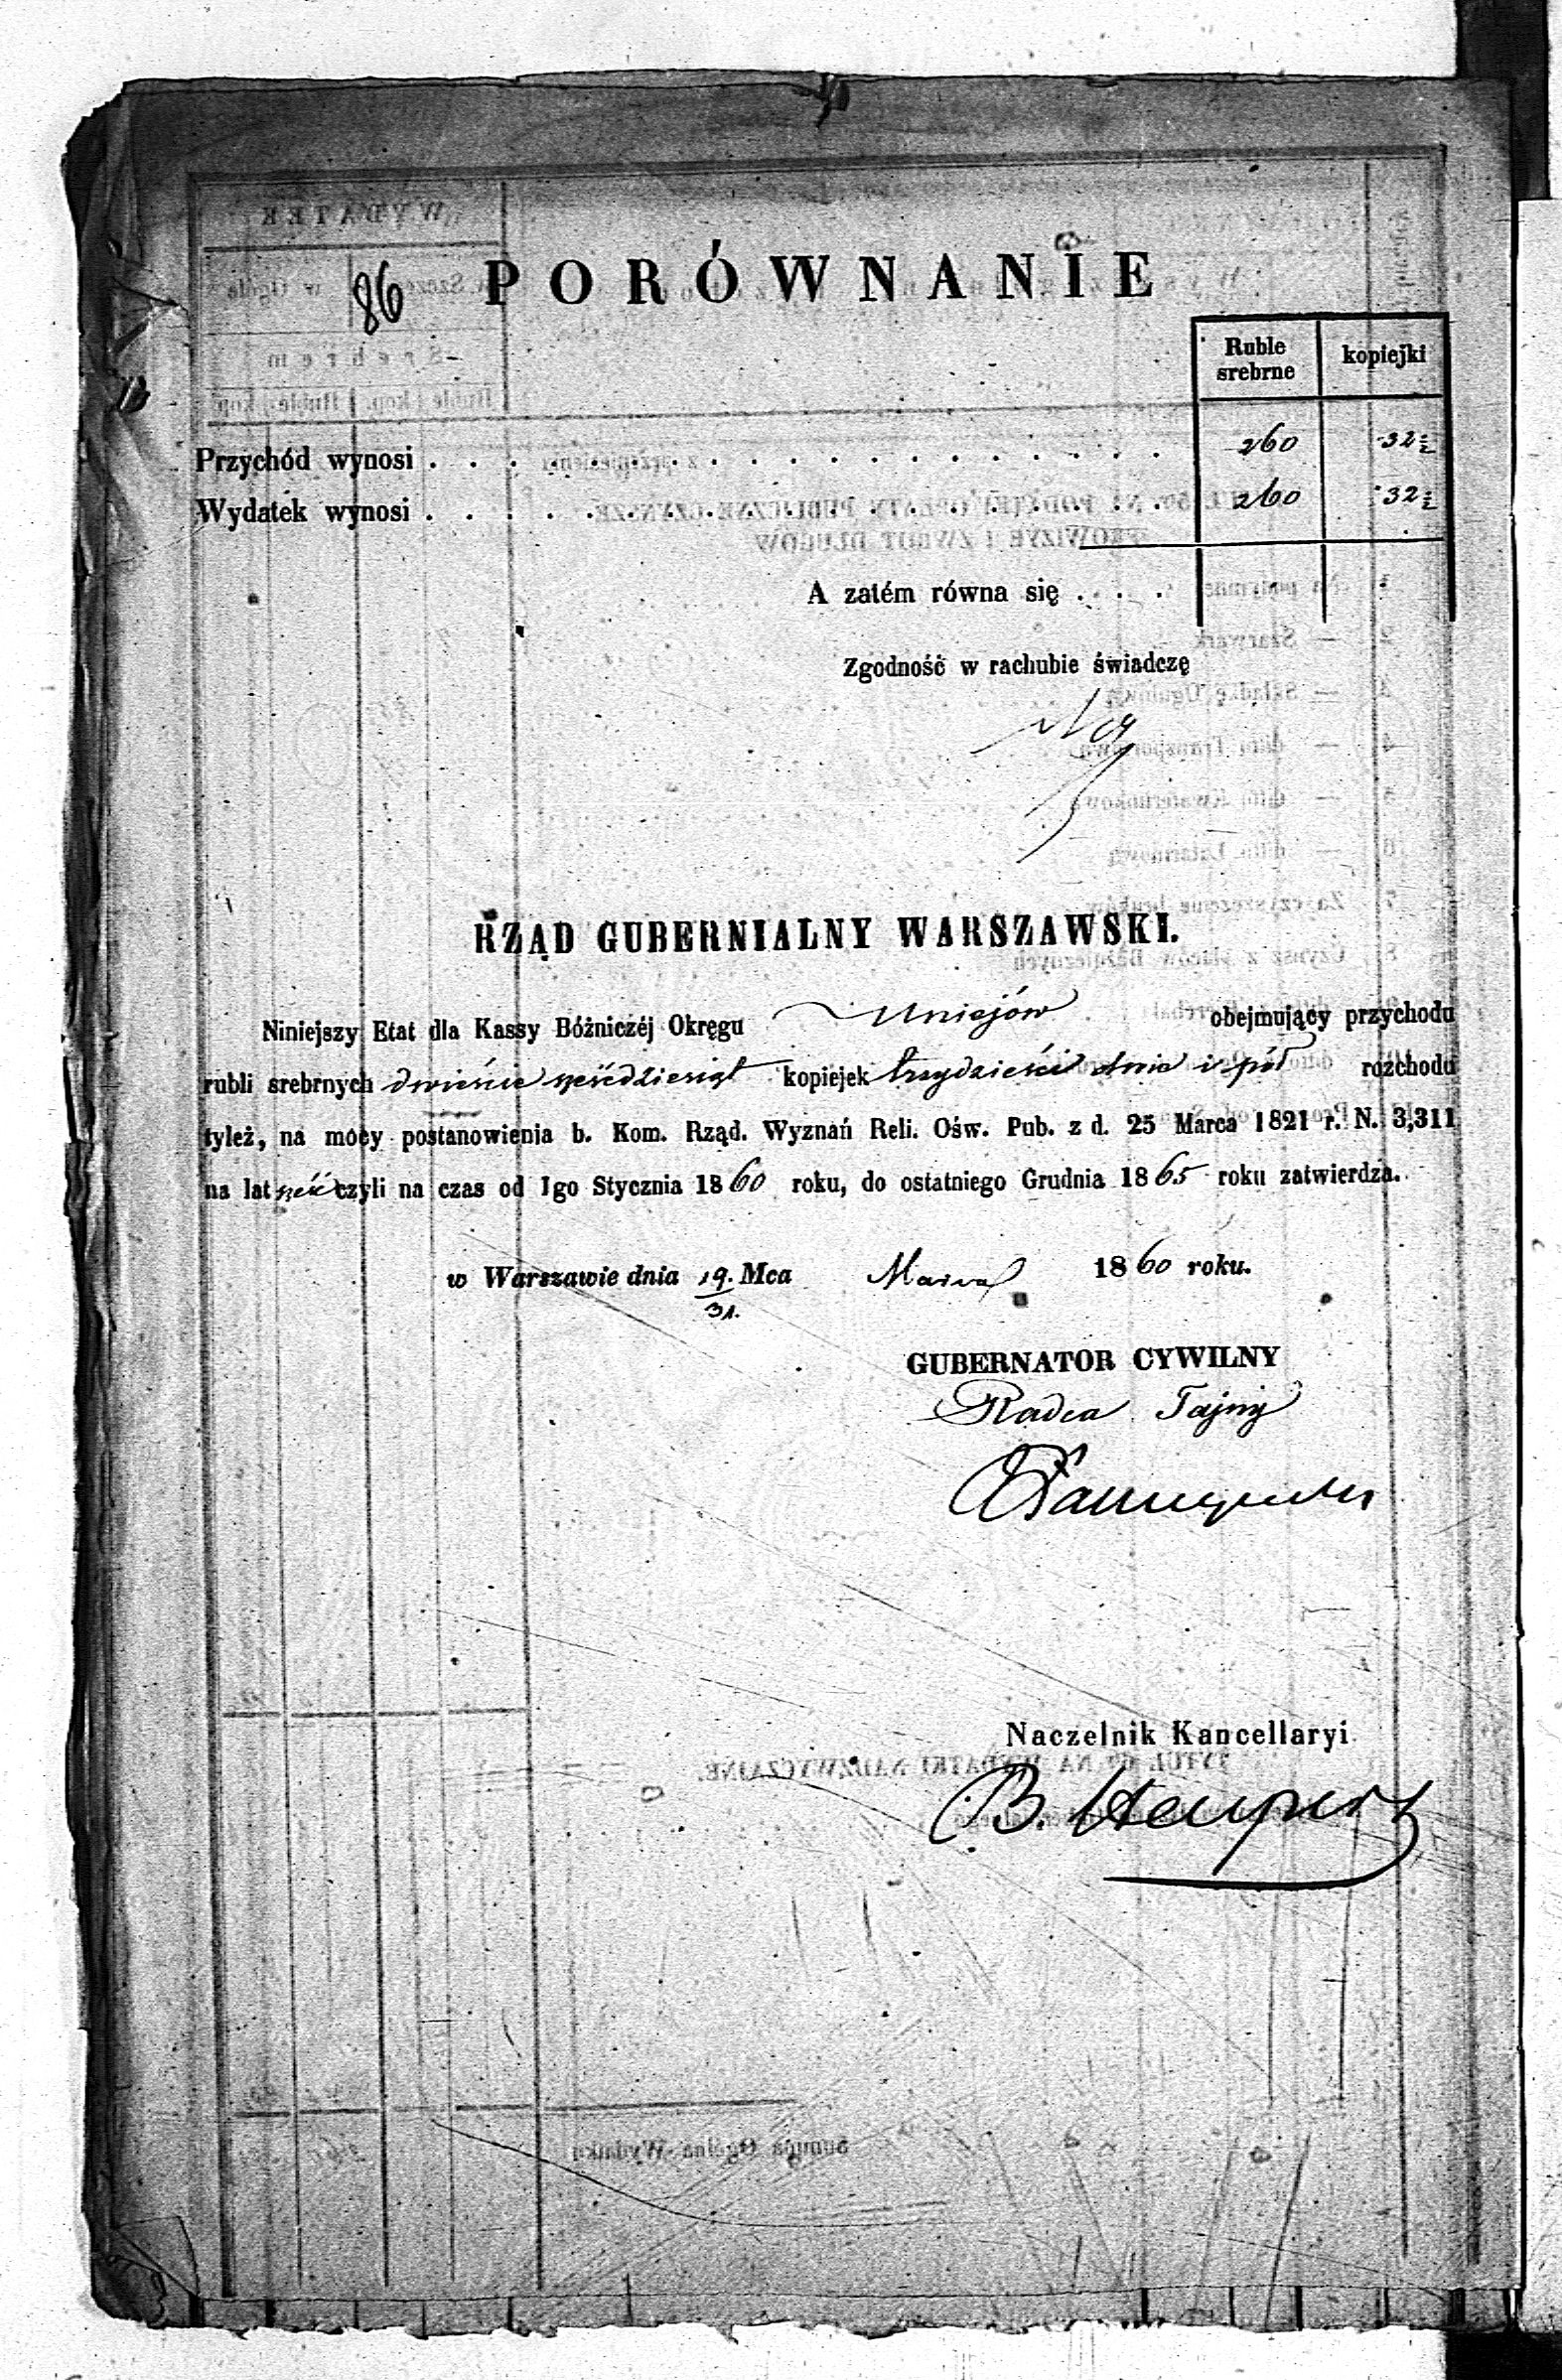 86
PORÓWNANIE
Ruble srebrne kopiejki
Przychód wynosi . . . 260 32½
Wydatek wynosi . . . 260 32½
A zatém równa się . . .
Zgodność w rachubie świadczę
RZĄD GUBERNIALNY WARSZAWSKI.
Niniejszy Etat dla Kassy Bóżniczéj Okręgu Uniejów obejmujący przychodu
rubli srebrnych dwieście sześćdziesiąt kopiejek trzydzieści dwie i pół rozchodu
tyleż, na mocy postanowienia b. Kom. Rząd. Wyznań Reli. Ośw. Pub. z d. 25 Marca 1821 r. N. 3,311
na lat sześć czyli na czas od 1go Stycznia 1860 roku, do ostatniego Grudnia 1865 roku zatwierdza.
w Warszawie dnia 19/31. Mca Marca 1860 roku.
GUBERNATOR CYWILNY
Radca Tajny
Naczelnik Kancellaryi
B.